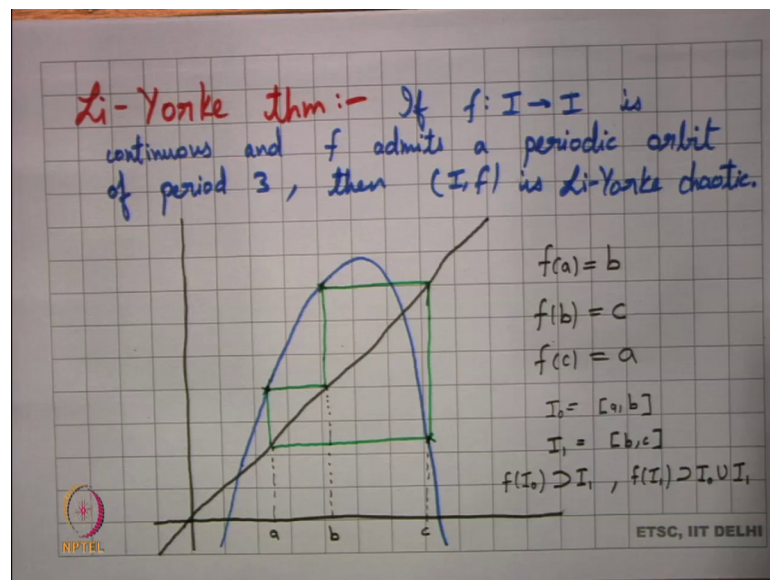 Li-Yorke thm:- If f: I → I is
continuous and f admits a periodic orbit
of period 3, then (I,f) is Li-Yorke chaotic.
f(a) = b
f(b) = c
f(c) = a
I₀ = [a,b]
I₁ = [b,c]
f(I₀) ⊃ I₁ , f(I₁) ⊃ I₀ ∪ I₁
a b c
NPTEL
ETSC, IIT DELHI